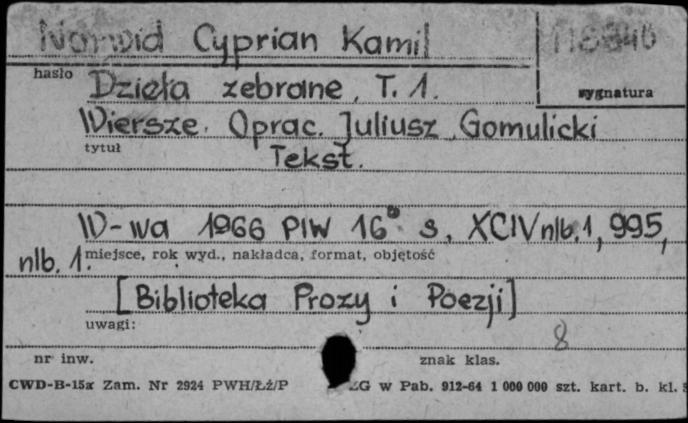 Norwid Cyprian Kamil
hasło
sygnatura
Dzieła zebrane, T. 1.
Wiersze. Oprac. Juliusz Gomulicki
tytuł
Tekst.
W-wa 1966 PIW 16° s. XCIV nlb. 1, 995,
nlb. 1.
miejsce, rok wyd., nakładca, format, objętość
[Biblioteka Prozy i Poezji]
uwagi:
8
nr inw.
znak klas.
CWD-B-15a Zam. Nr 2924 PWH/Łź/P ZG w Pab. 912-64 1 000 000 szt. kart. b. kl.